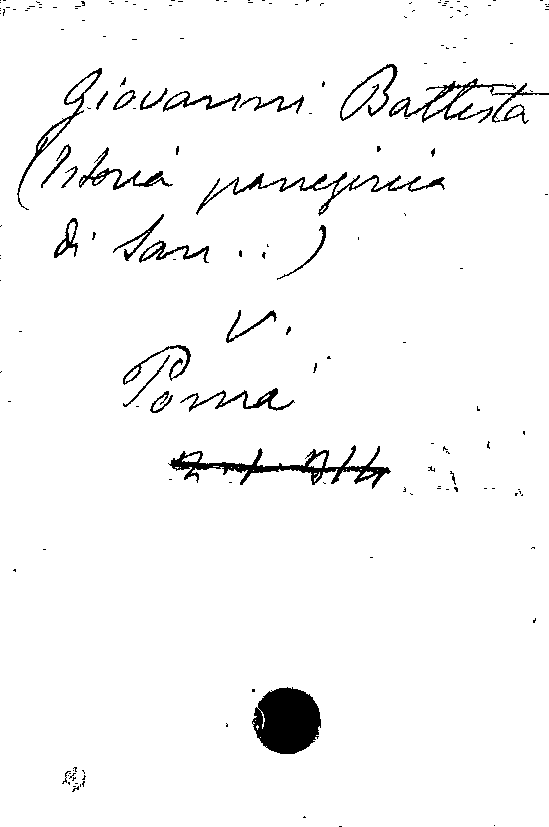 Giovanni Battista
(Istoria panegirica
di San...)
v.
Poma